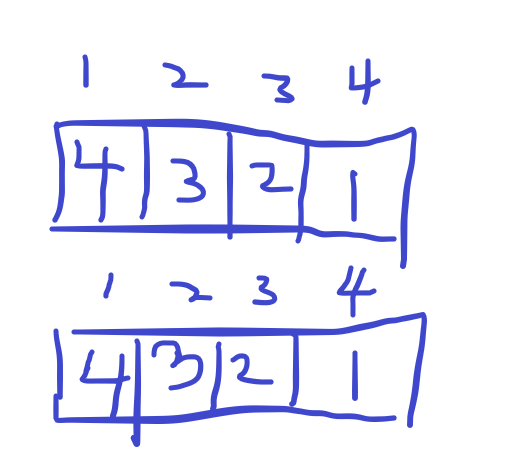 1 2 3 4
4 3 2 1
1 2 3 4
4 3 2 1